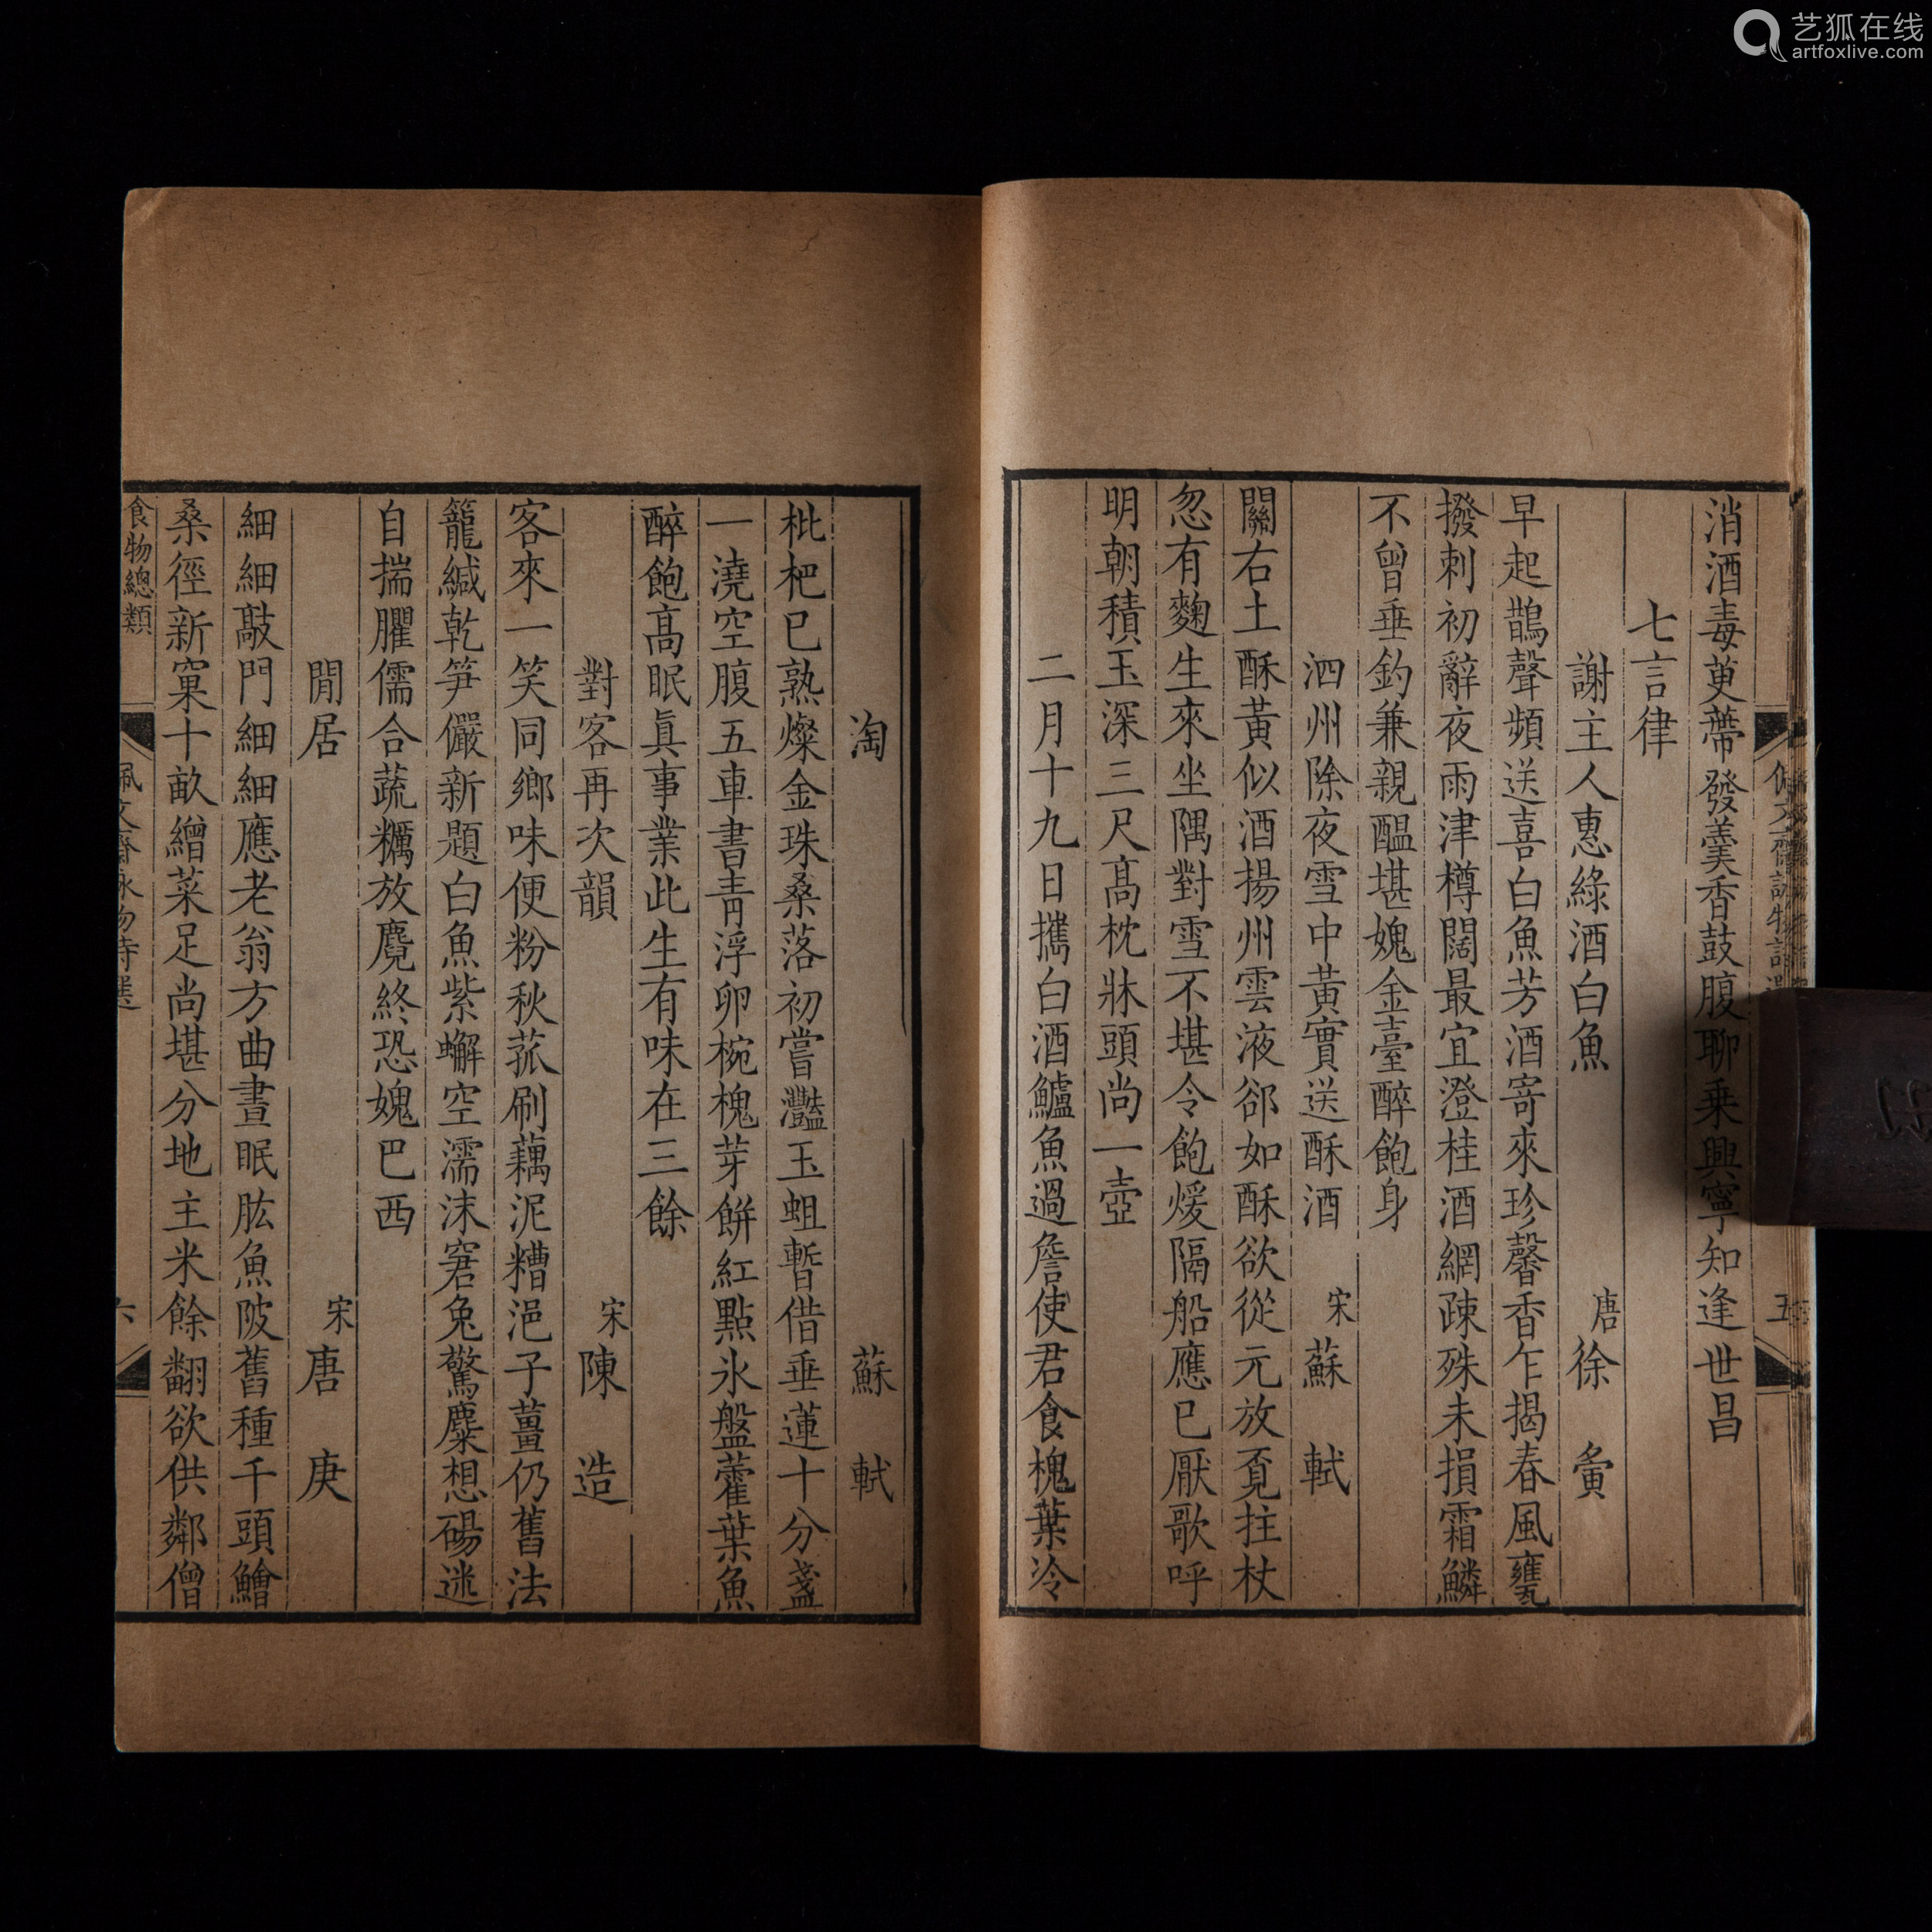 艺狐在线
artfoxlive.com
消酒毒茰薺發羹香鼓腹聊乗興寧知逢世昌
七言律
謝主人惠綠酒白魚 唐徐夤
早起鵲聲頻送喜白魚芳酒寄來珍馨香乍揭春風甕
撥刺初辭夜雨津樽闊最宜澄桂酒網疎殊未損霜鱗
不曾垂釣兼親醖堪媿金臺醉飽身
泗州除夜雪中黃實送酥酒 宋蘇軾
關右土酥黃似酒揚州雲液郤如酥欲從元放覔拄杖
忽有麴生來坐隅對雪不堪令飽煖隔船應已厭歌呼
明朝積玉深三尺高枕牀頭尚一壺
二月十九日攜白酒鱸魚過詹使君食槐葉冷
淘 蘇軾
枇杷已熟燦金珠桑落初嘗灩玉蛆暫借垂蓮十分盞
一澆空腹五車書青浮卵椀槐芽餅紅點氷盤藿葉魚
醉飽高眠眞事業此生有味在三餘
對客再次韻 宋陳造
客來一笑同鄉味便粉秋菰刷藕泥糟浥子薑仍舊法
籠緘乾笋儼新題白魚紫蠏空濡沫窘兔驚麋想碭迷
自揣臞儒合蔬糲放麑終恐媿巴西
閒居 宋唐庚
細細敲門細細應老翁方曲晝眠肱魚陂舊種千頭鱠
桑徑新窠十畝繒菜足尚堪分地主米餘翻欲供鄰僧
食物總類
佩文齋詠物詩選
六
五